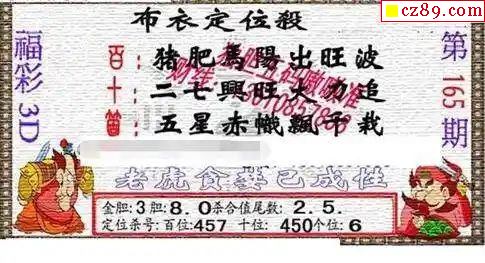 cz89.com
布衣定位殺
福彩3D
第165期
百：猪肥馬陽出旺波
十：二七興旺大力追
個：五星赤幟飄子栽
老虎食葷已成性
金胆:3胆:8.0杀合值尾数:2.5.
定位杀号:百位:457 十位:450个位:6